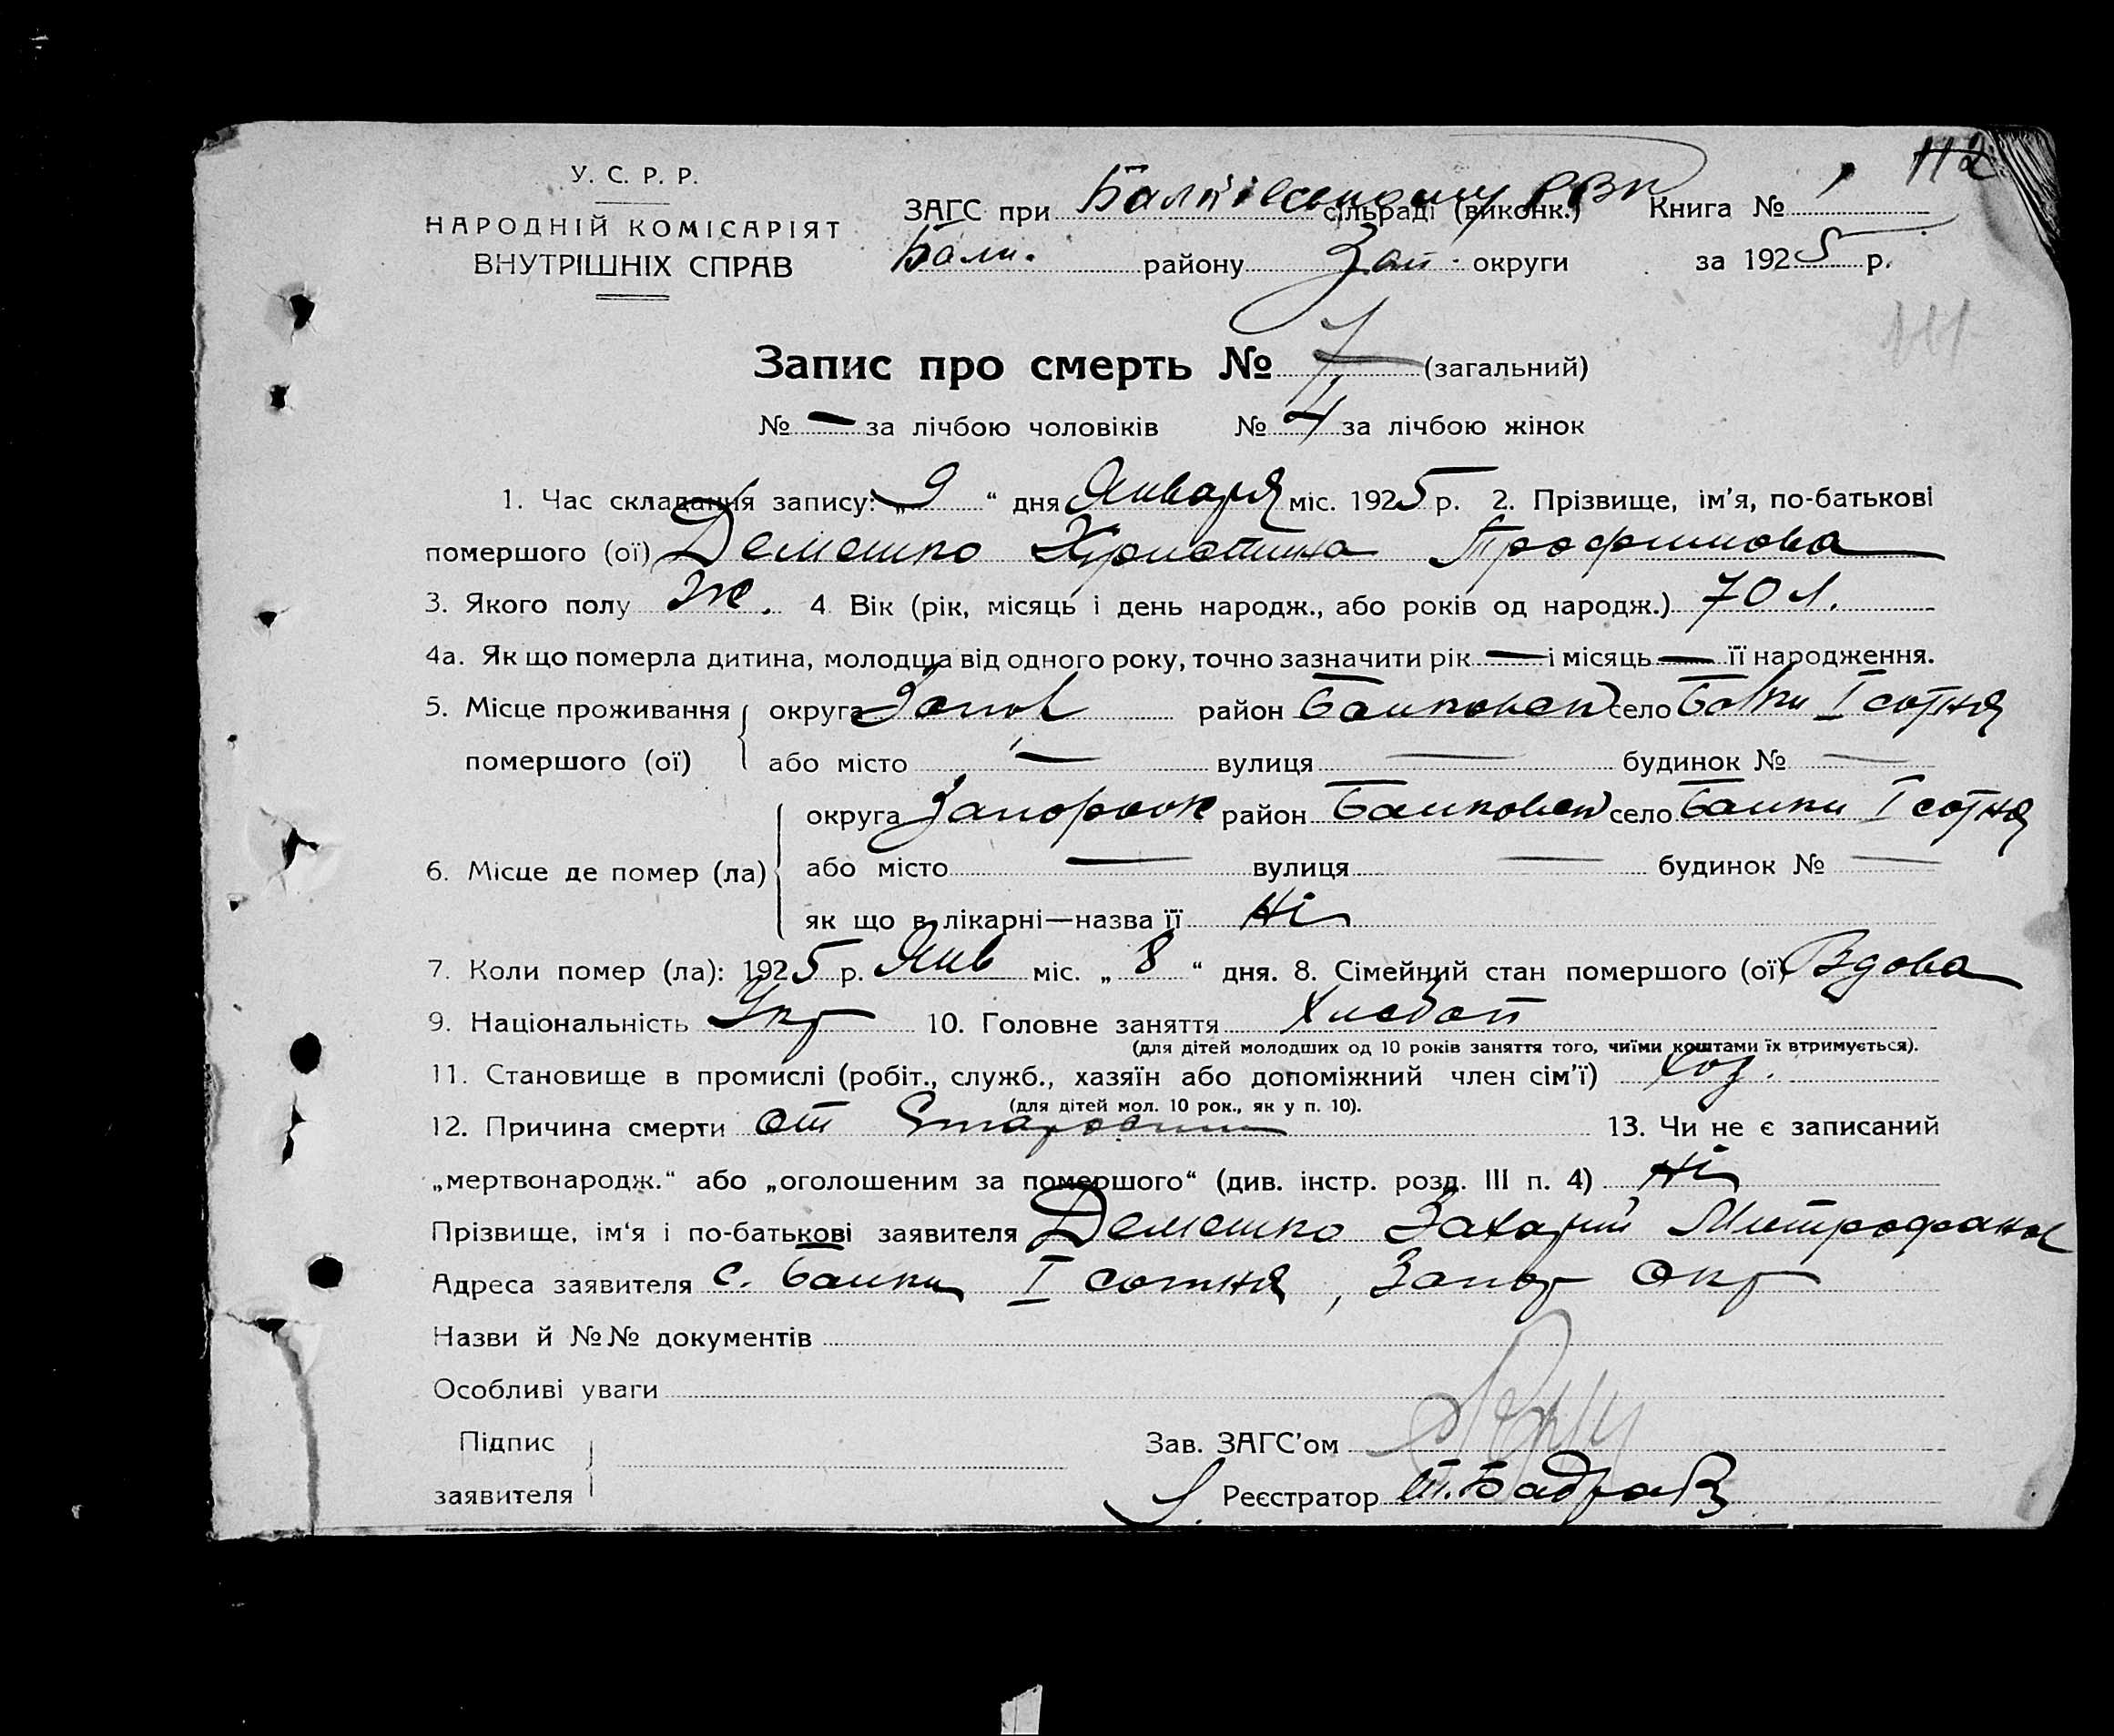 112
У. С. Р. Р.
НАРОДНІЙ КОМІСАРІЯТ
ВНУТРІШНІХ СПРАВ
ЗАГС при Балківському РВК сільраді (виконк.) Книга № 1
Балк. району Зап. округи за 1925 р.
111
Запис про смерть № 7 (загальний)
№ — за лічбою чоловіків № 4 за лічбою жінок
1. Час складання запису: „9“ дня Января міс. 1925 р. 2. Прізвище, ім'я, по-батькові
помершого (ої) Демешко Христина Трофимова
3. Якого полу Ж. 4 Вік (рік, місяць і день народж., або років од народж.) 70 л.
4а. Як що померла дитина, молодща від одного року, точно зазначити рік — і місяць — її народження.
5. Місце проживання округа Запор район Балковск село Балки I сотня
помершого (ої) або місто — вулиця — будинок № —
округа Запорож район Балковск село Балки I сотня
6. Місце де помер (ла) або місто — вулиця — будинок № —
як що в лікарні—назва її Ні
7. Коли помер (ла): 1925 р. Янв міс. „8“ дня. 8. Сімейний стан помершого (ої) Вдова
9. Національність Укр 10. Головне заняття Хлебоп
(для дітей молодших од 10 років заняття того, чиїми коштами їх втримується).
11. Становище в промислі (робіт., служб., хазяїн або допоміжний член сім'ї) Хоз.
(для дітей мол. 10 рок., як у п. 10).
12. Причина смерти от Старости 13. Чи не є записаний
„мертвонародж.“ або „оголошеним за помершого“ (див. інстр. розд. III п. 4) Ні
Прізвище, ім'я і по-батькові заявителя Демешко Захарий Митрофанов
Адреса заявителя с. Балки I сотня, Запор Окр
Назви й №№ документів
Особливі уваги
Підпис
заявителя
Зав. ЗАГС'ом
Реєстратор